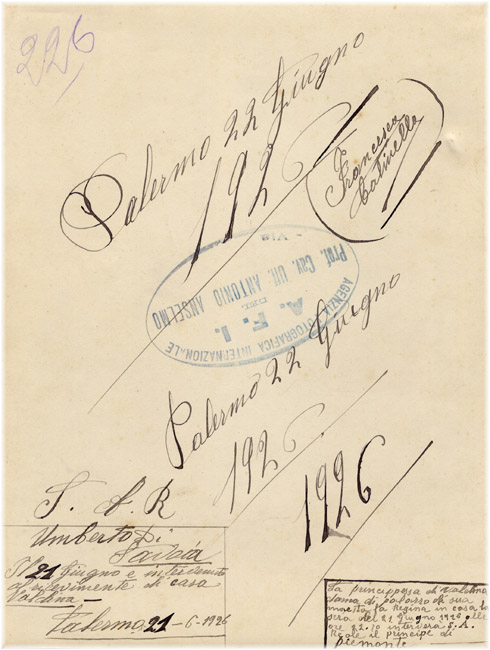 226
Palermo 22 Giugno
1926
Francesca
Catinella
AGENZIA FOTOGRAFICA INTERNAZIONALE
A. F. I.
DEL
Prof. Cav. Uff. ANTONIO ANSELMO
- Via
Palermo 22 Giugno
1926
1926
S. A. R
Umberto Di
Savoia
Il 21 Giugno e
ricevimento di casa
Valdina
Palermo 21-6-1926
La principessa di Valdina
dama di palasso di sua
maestà la Regina in casa la
sera del 21 Giugno 1926 alle
ore 22.30 interverà S. A.
Reale il principe di
Piemonte